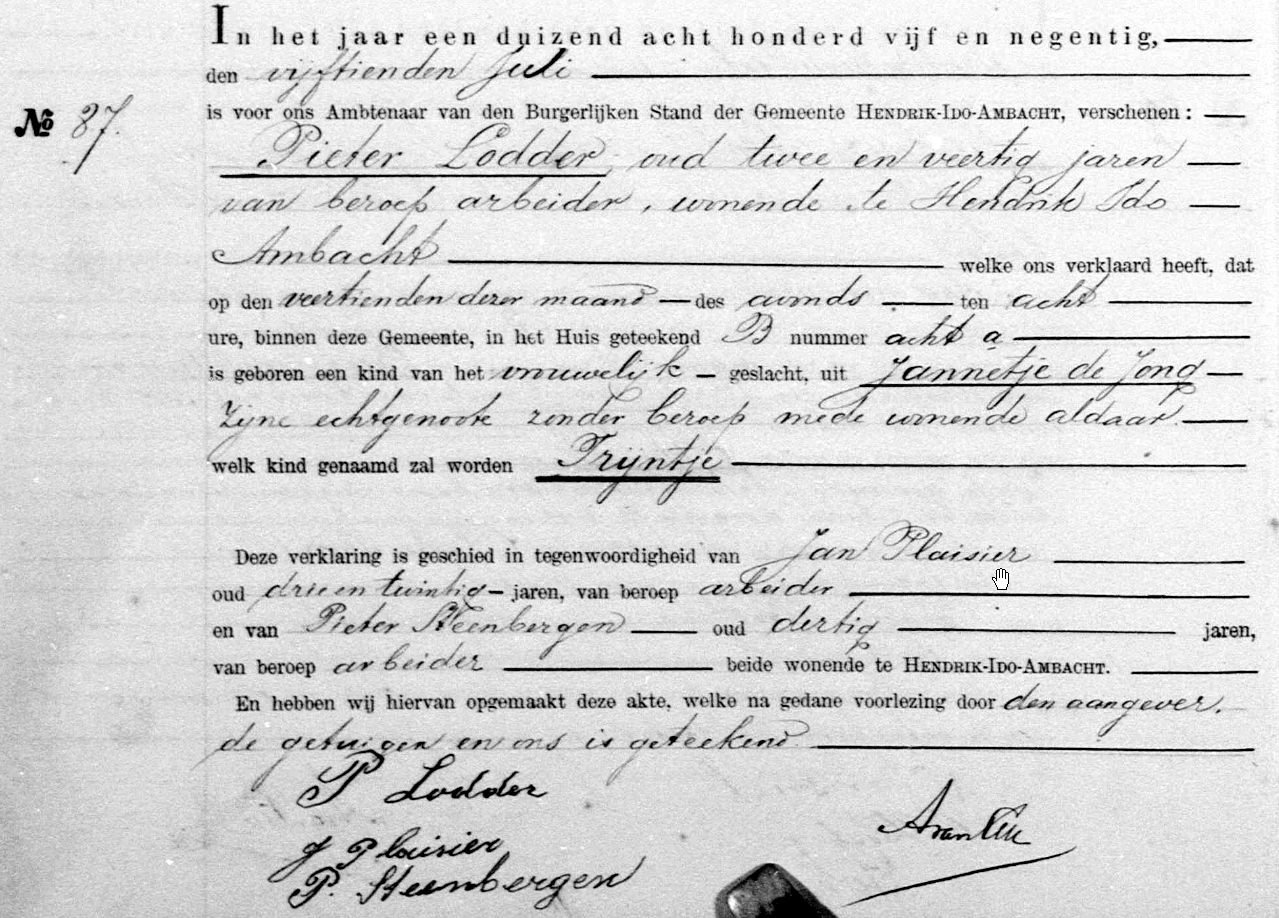 In het jaar een duizend acht honderd vijf en negentig,
den vijftienden Juli
is voor ons Ambtenaar van den Burgerlijken Stand der Gemeente HENDRIK-IDO-AMBACHT, verschenen:
No 87.
Pieter Lodder, oud twee en veertig jaren
van beroep arbeider, wonende te Hendrik Ido
Ambacht welke ons verklaard heeft, dat
op den veertienden dezer maand des avonds ten acht
ure, binnen deze Gemeente, in het Huis geteekend B nummer acht a
is geboren een kind van het vrouwelijk geslacht, uit Jannetje de Jong
zijne echtgenoote zonder beroep mede wonende aldaar.
welk kind genaamd zal worden Trijntje
Deze verklaring is geschied in tegenwoordigheid van Jan Plaisier
oud drie en twintig jaren, van beroep arbeider
en van Pieter Steenbergen oud dertig jaren,
van beroep arbeider beide wonende te HENDRIK-IDO-AMBACHT.
En hebben wij hiervan opgemaakt deze akte, welke na gedane voorlezing door den aangever,
de getuigen en ons is geteekend.
P Lodder
J Plaisier
P. Steenbergen